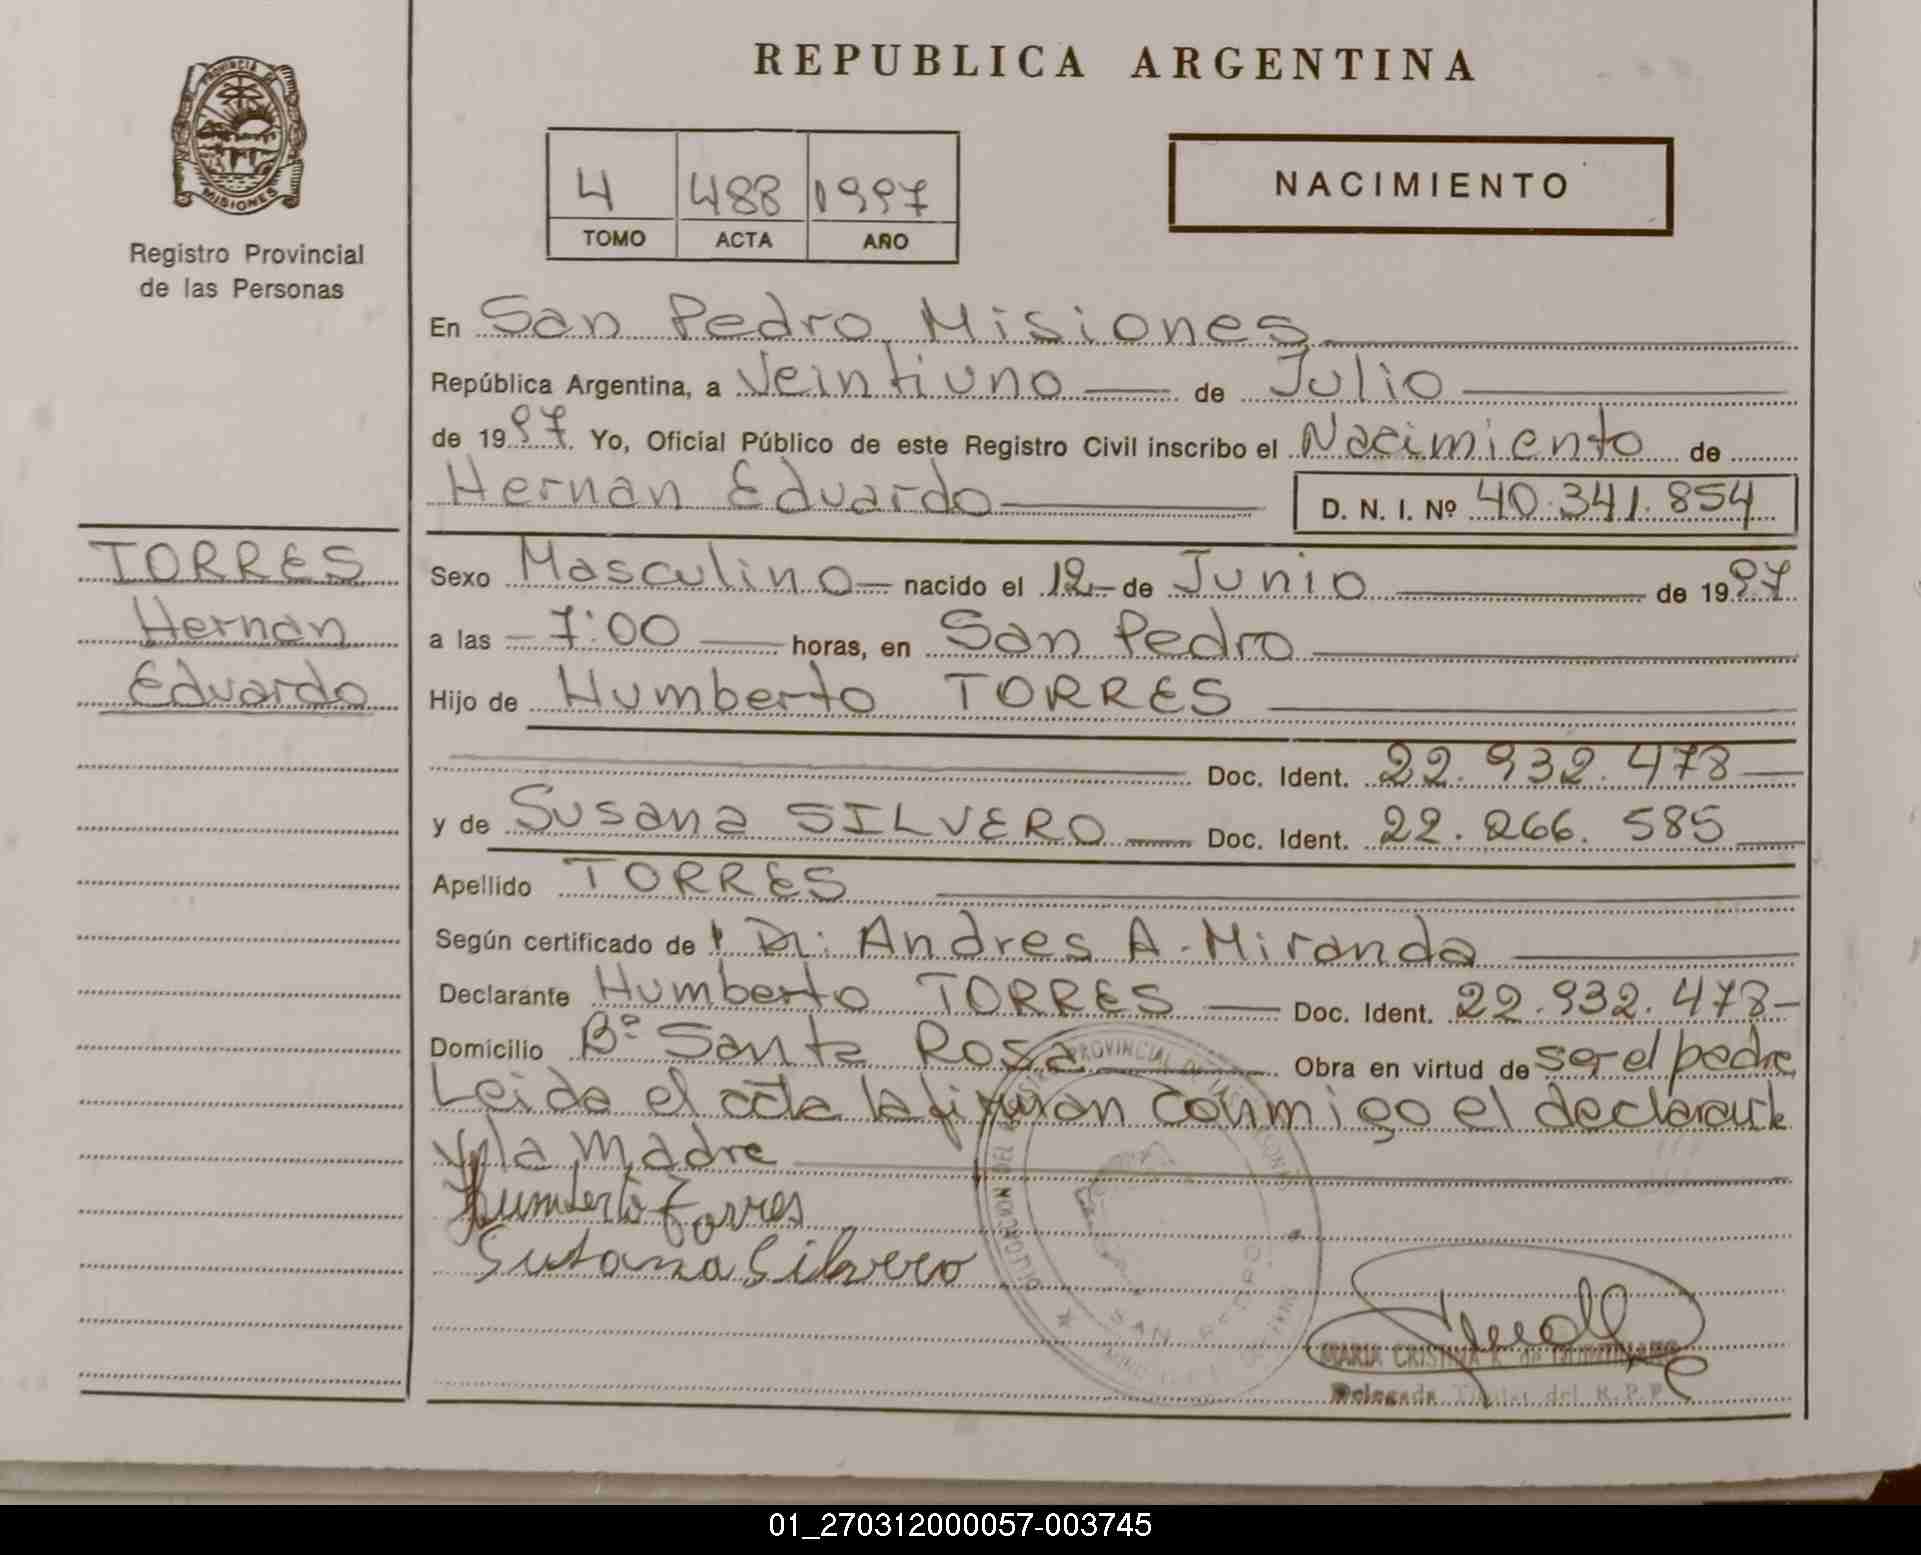 REPUBLICA ARGENTINA
PROVINCIA DE
MISIONES
Registro Provincial
de las Personas
4 488 1997
TOMO ACTA AÑO
NACIMIENTO
En San Pedro Misiones
República Argentina, a Veintiuno de Julio
de 1997 Yo, Oficial Público de este Registro Civil inscribo el Nacimiento de
Hernan Eduardo D. N. I. Nº 40.341.854
TORRES
Hernan
Eduardo
Sexo Masculino nacido el 12 de Junio de 1997
a las 7:00 horas, en San Pedro
Hijo de Humberto TORRES
Doc. Ident. 22.932.478
y de Susana SILVERO Doc. Ident. 22.266.585
Apellido TORRES
Según certificado de Dr: Andres A. Miranda
Declarante Humberto TORRES Doc. Ident. 22.932.478
Domicilio Bº Santa Rosa Obra en virtud de ser el padre
Leida el acta la firman conmigo el declarante
y la madre
Humberto Torres
Susana Silvero
PROVINCIAL DE LAS
SAN PEDRO
MARIA CRISTINA R. de
Delegada Titular del R.P.P.
01_270312000057-003745